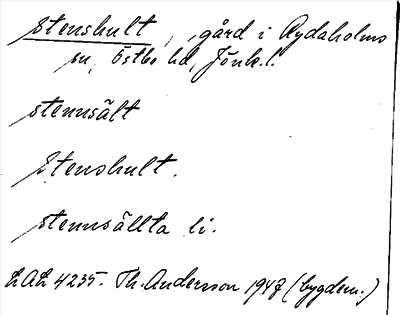 stenshult, gård i Rydaholms
sn, Östbo hd, Jönk.l.
stennsält
Stenshult.
stennsällta li.
LAL 4235. Th. Andersson 1947 (bygdem.)